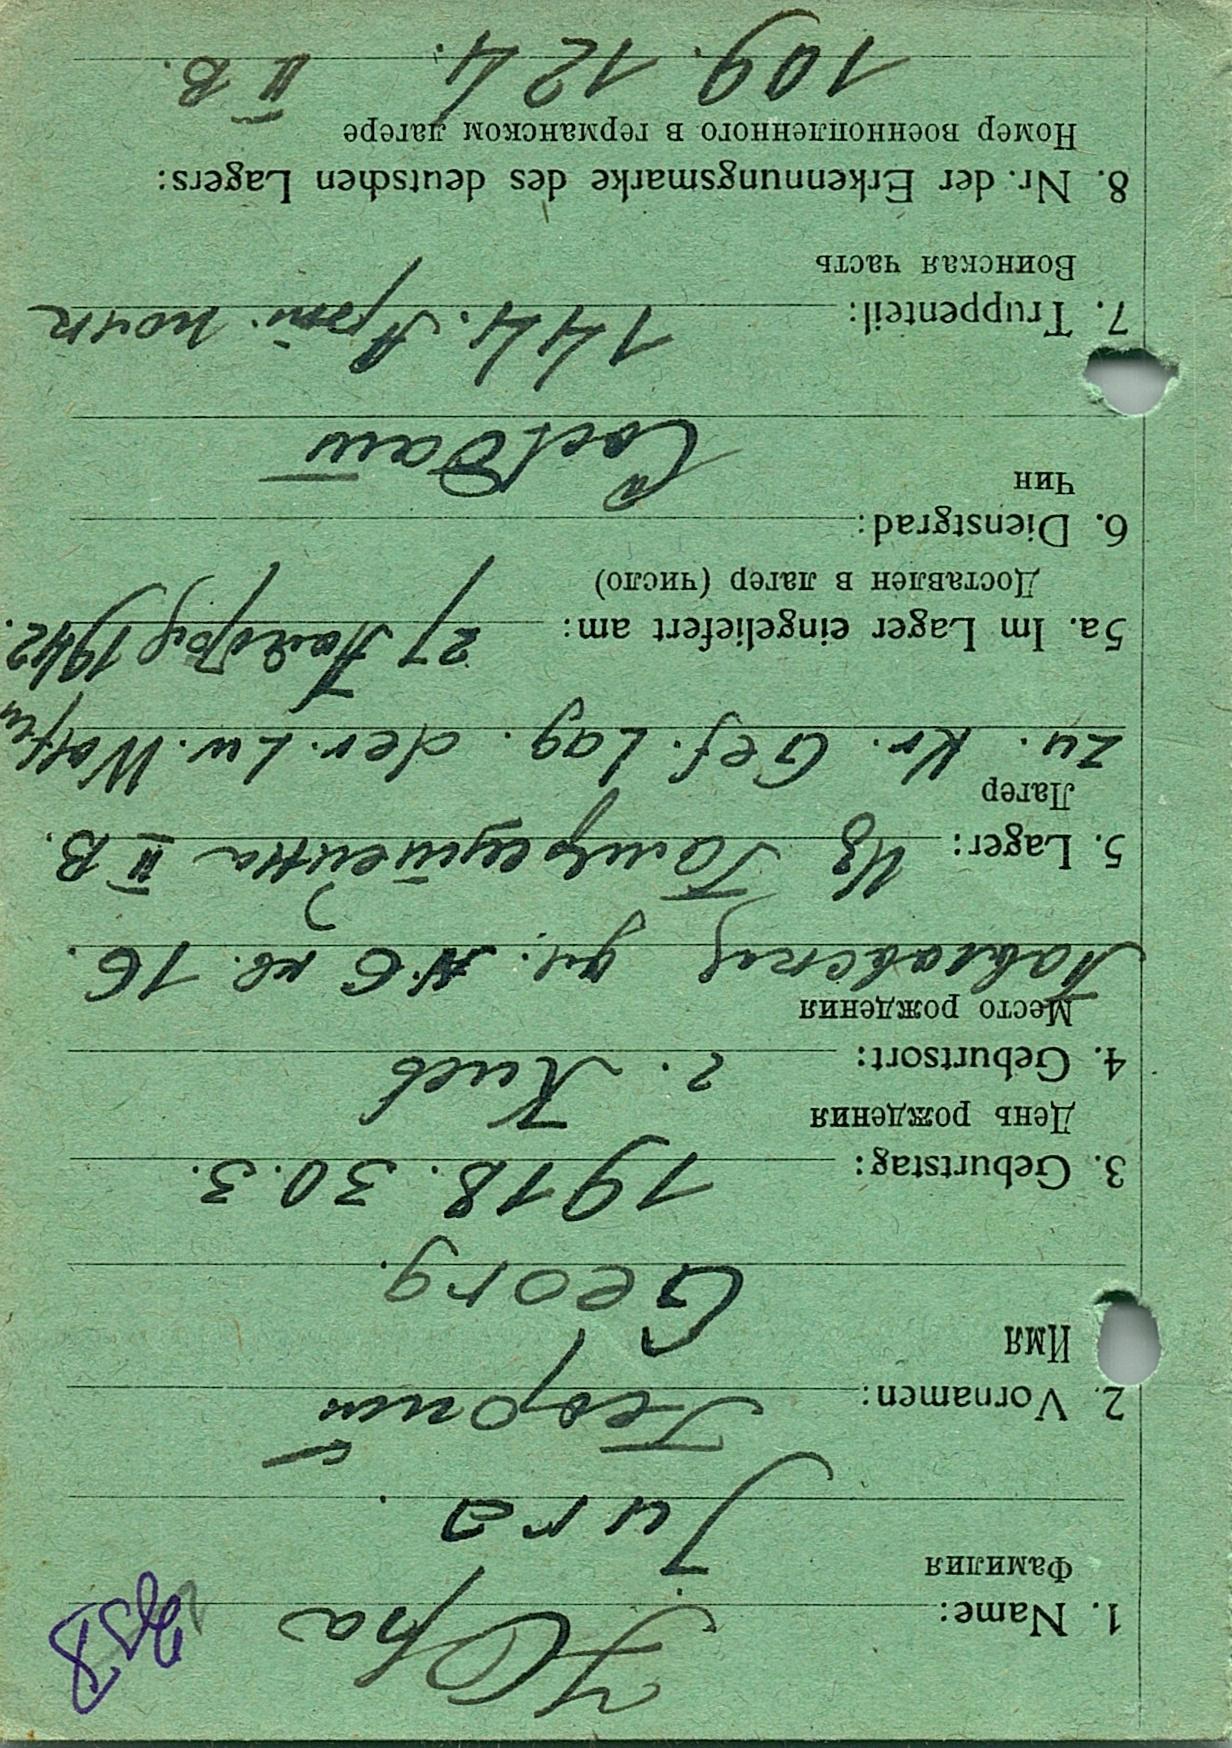 1. Name: Юра
Фамилия
Jura.
2. Vornamen: Георгий
Имя
Georg.
3. Geburtstag: 1918. 30.3.
День рождения
4. Geburtsort: г. Киев
Место рождения
Павловская ул. № 6 кв. 16.
5. Lager: Из II B.
Лагер
zu. Kr. Gef. Lag. der. Lw. Waffen
5a. Im Lager eingeliefert am: 27 1942.
Доставлен в лагер (число)
6. Dienstgrad:
Чин
Солдат
7. Truppenteil: 144. Арт. полк
Воинская часть
8. Nr. der Erkennungsmarke des deutschen Lagers:
Номер военнопленного в германском лагере
109.124. II B.